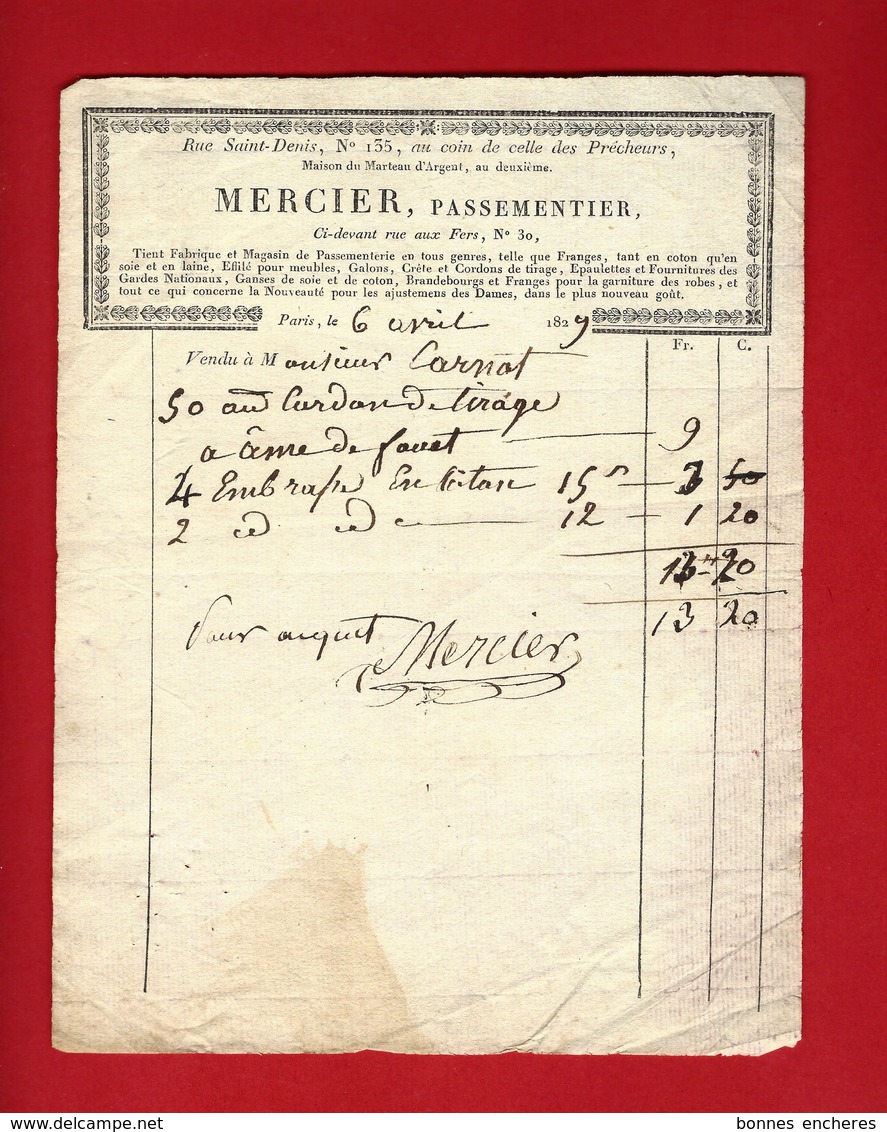 Rue Saint-Denis, Nº 135, au coin de celle des Précheurs,
Maison du Marteau d'Argent, au deuxième.
MERCIER, PASSEMENTIER,
Ci-devant rue aux Fers, Nº 30,
Tient Fabrique et Magasin de Passementerie en tous genres, telle que Franges, tant en coton qu'en
soie et en laine, Effilé pour meubles, Galons, Crête et Cordons de tirage, Epaulettes et Fournitures des
Gardes Nationaux, Ganses de soie et de coton, Brandebourgs et Franges pour la garniture des robes, et
tout ce qui concerne la Nouveauté pour les ajustemens des Dames, dans le plus nouveau goût.
Paris, le 6 avril 1829
Fr. C.
Vendu à Monsieur Carnot
50 au Cordon de tirage
a âme de fouet 9
4 Embrasse En 15 s 3
2 id id 12 1 20
13 20
13 20
Pour acquit Mercier
bonnes encheres